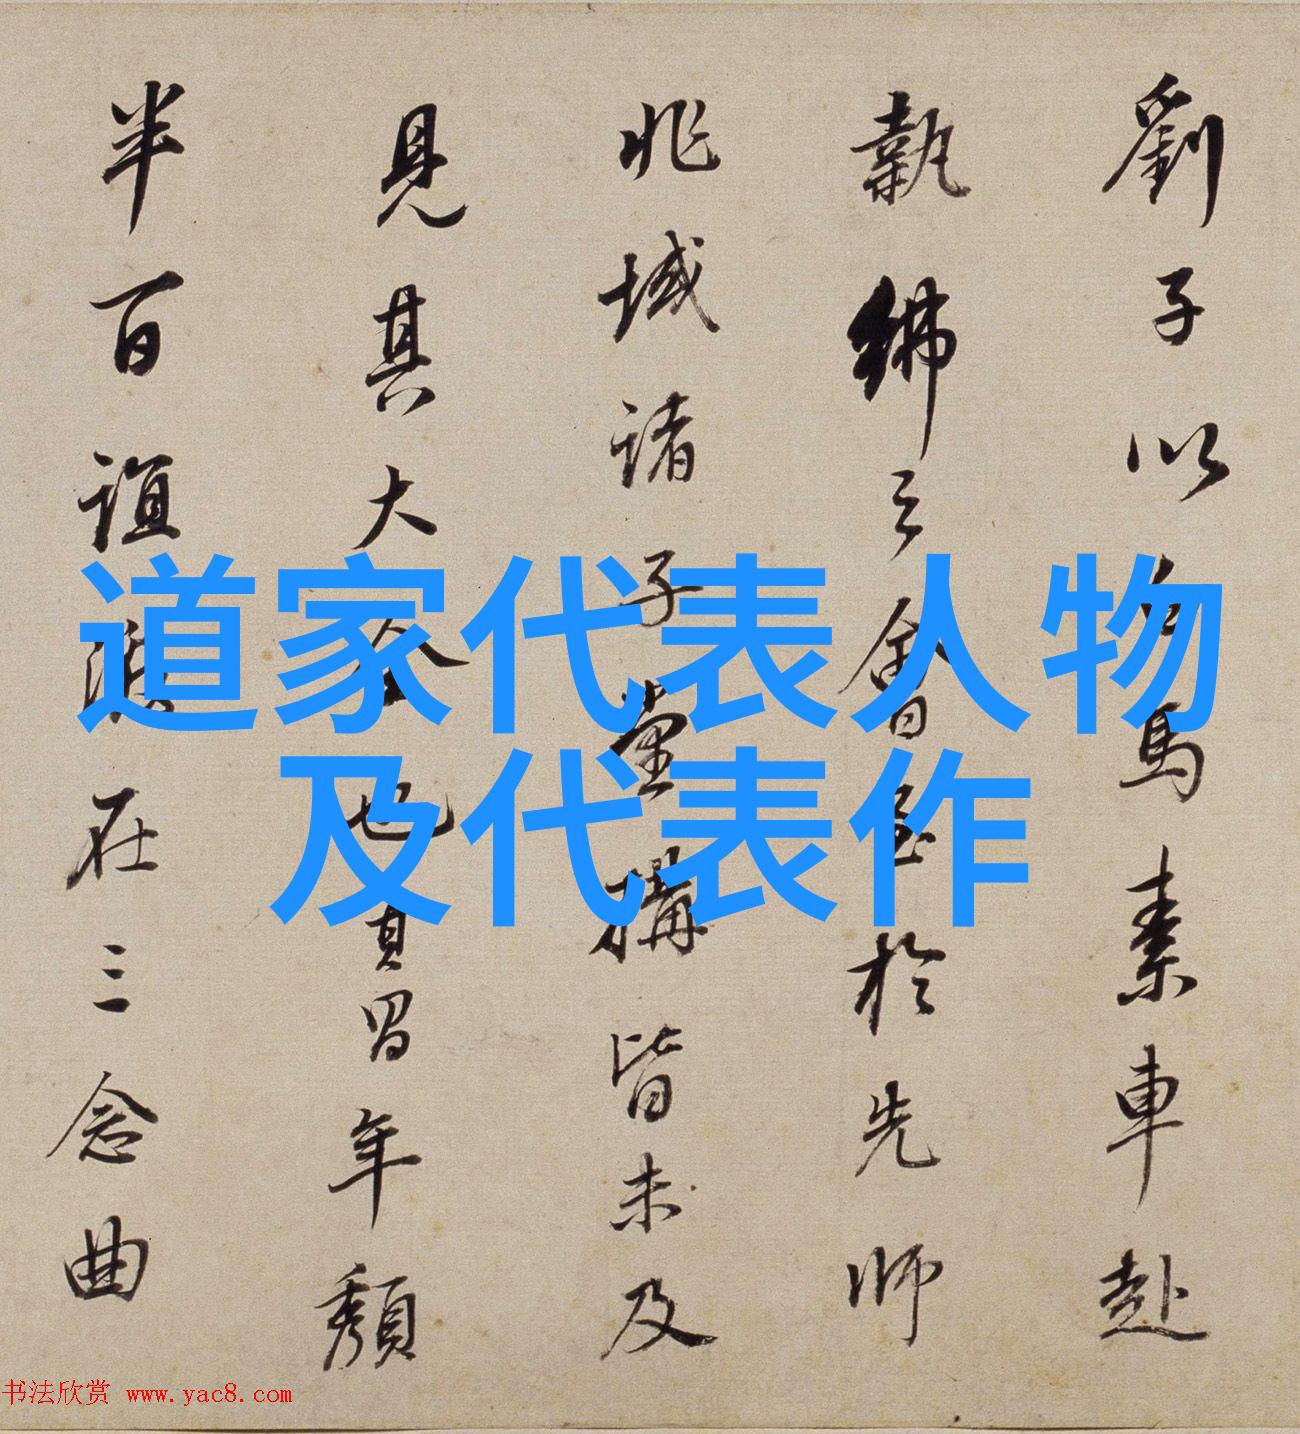 道家代表人物
及代表作
劉子以白馬素車赴
執紼之會於先師
兆域諸子堂構皆未及
見其大全也年頹
半百誼在三念曲
书法欣赏 www.yac8.com